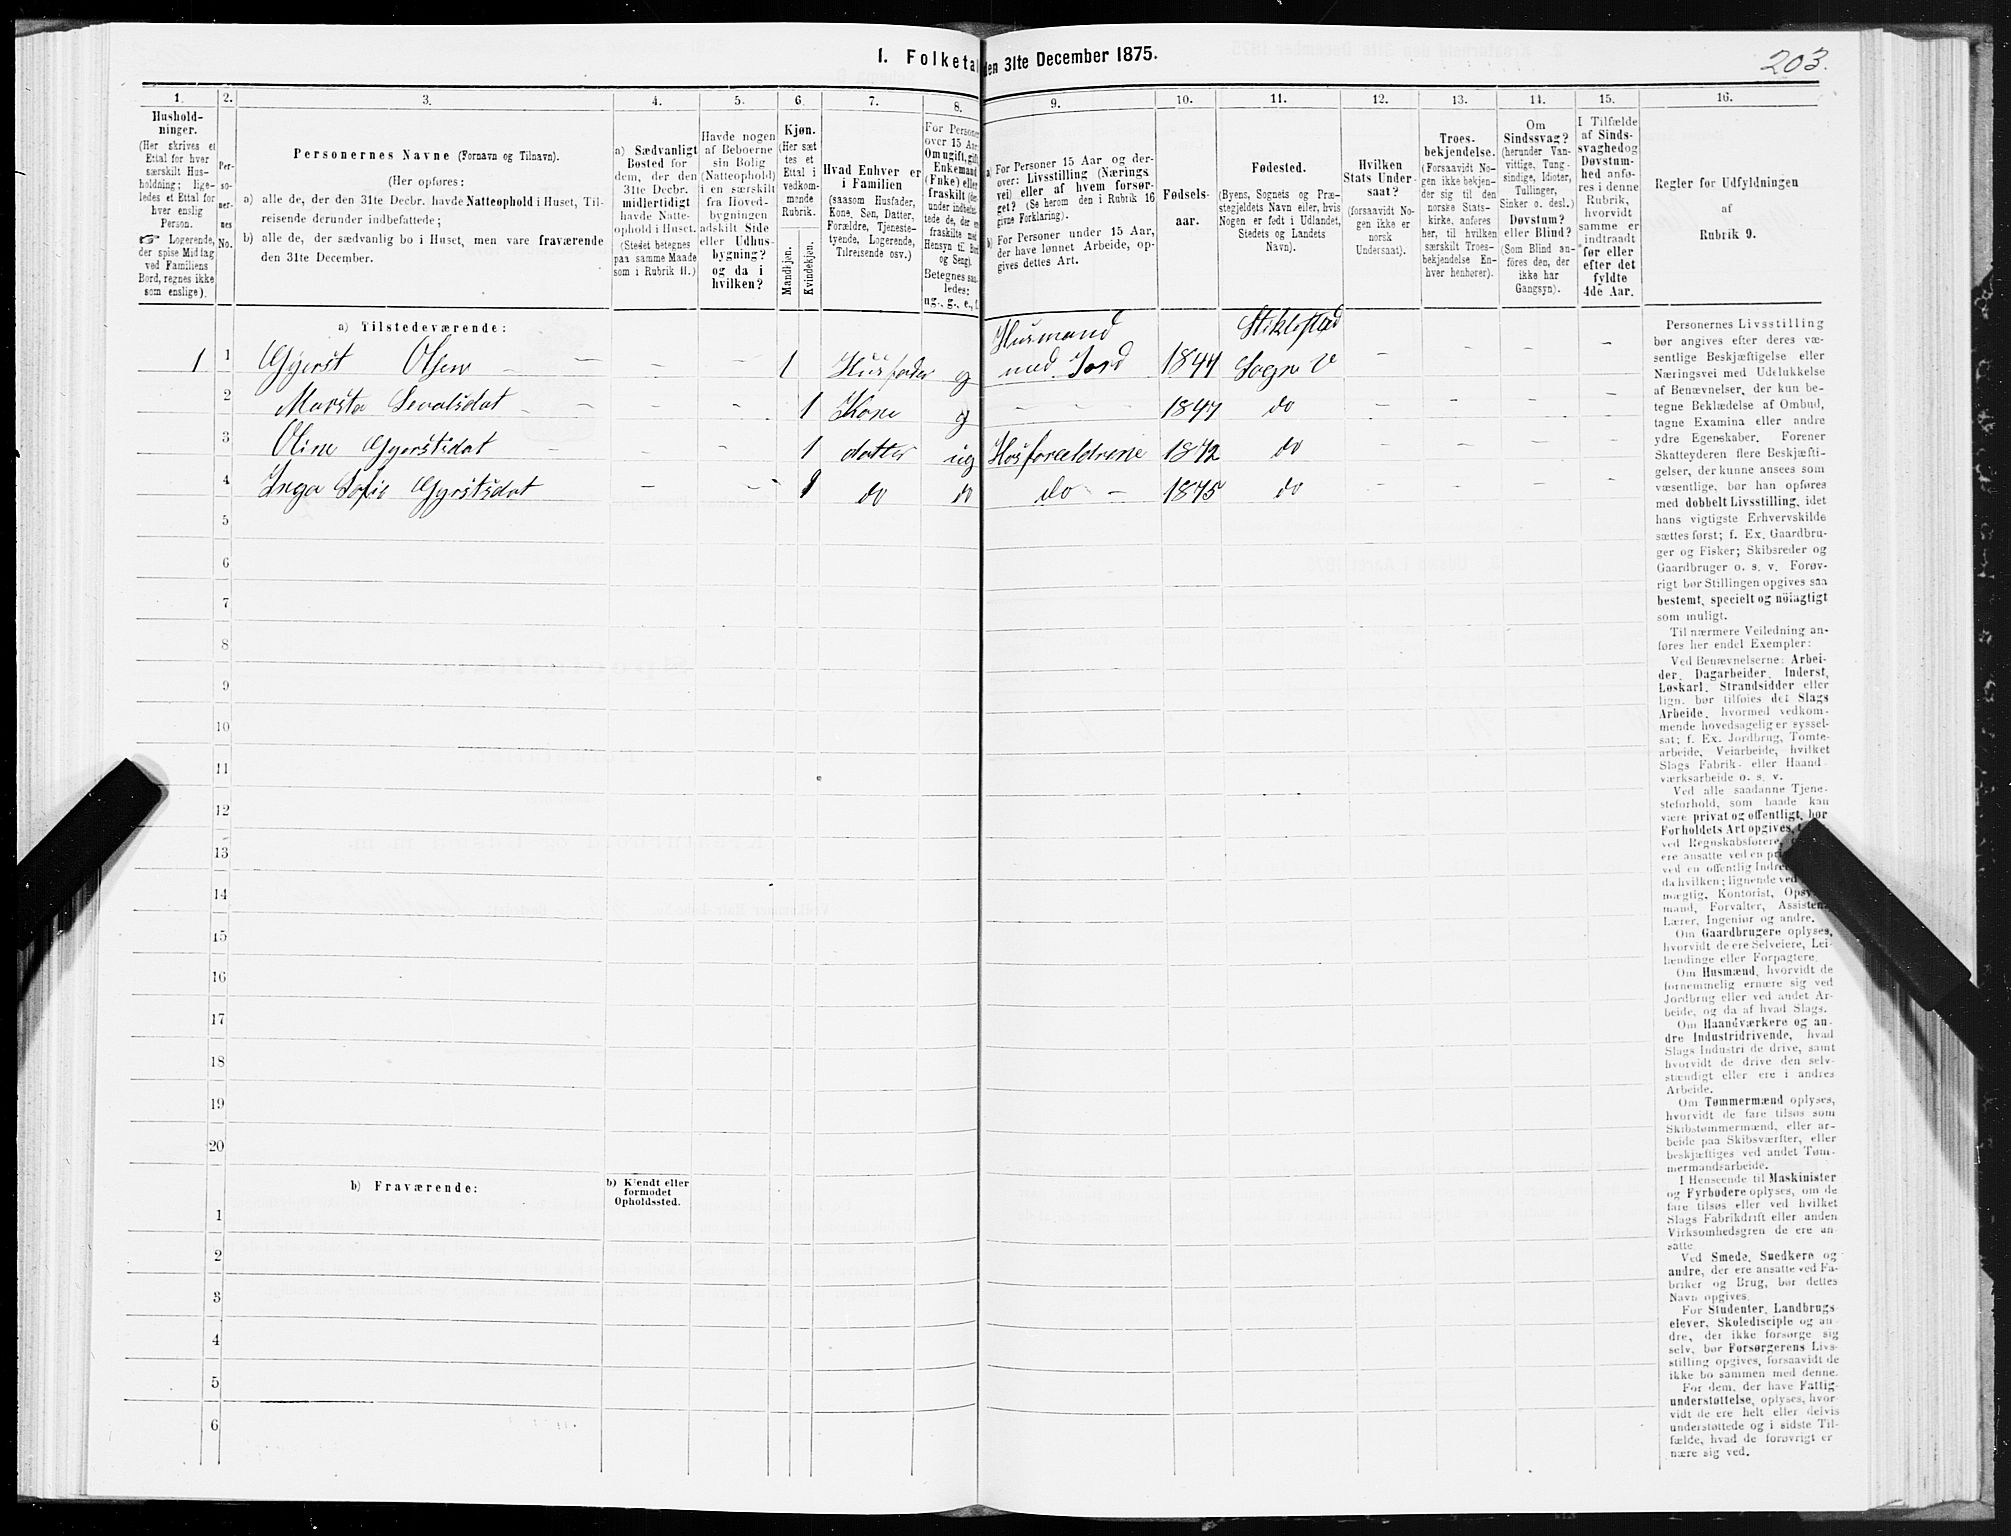 1. Folketal den 31te December 1875.
203.
1. 2. 3. 4. 5. 6. 7. 8. 9. 10. 11. 12. 13. 14. 15. 16.
Hushold-
ninger.
(Her skrives et
Ettal for hver
særskilt Hus-
holdning; lige-
ledes et Ettal for
hver enslig
Person.
☞ Logerende,
der spise Middag
ved Familiens
Bord, regnes ikke
som enslige).
Per-
so-
ner-
nes
No.
Personernes Navne (Fornavn og Tilnavn).
(Her opføres:
a) alle de, der den 31te Decbr. havde Natteophold i Huset, Til-
reisende derunder indbefattede;
b) alle de, der sædvanlig bo i Huset, men vare fraværende
den 31te December.
a) Sædvanligt
Bosted for
dem, der den
31te Decbr.
midlertidigt
havde Natte-
ophold i Huset.
(Stedet betegnes
paa samme Maade
som i Rubrik 11.)
Havde nogen
af Beboerne
sin Bolig
(Natteophold)
i en særskilt
fra Hoved-
bygningen
adskilt Side
eller Udhus-
bygning?
og da i
hvilken?
Kjøn.
(Her sæt-
tes et
Ettal i
vedkom-
mende
Rubrik.
Mandkjøn.
Kvindekjøn.
Hvad Enhver er
i Familien
(saasom Husfader,
Kone, Søn, Datter,
Forældre, Tjeneste-
tyende, Logerende,
Tilreisende osv.)
For Personer
over 15 Aar:
Om ugift, gift,
Enkemand
(Enke) eller
fraskilt
Betegnes saa-
ledes:
ug., g., e., f.
a) For Personer 15 Aar og der-
over: Livsstilling (Nærings-
vei) eller af hvem forsør-
get? (Se herom den i Rubrik 16
givne Forklaring).
b) For Personer under 15 Aar,
der have lønnet Arbeide, op-
gives dettes Art.
Fødsels-
aar.
Fødested.
(Byens, Sognets og Præ-
stegjeldets Navn eller, hvis
Nogen er født i Udlandet,
Stedets og Landets
Navn).
Hvilken
Stats Under-
saat?
(forsaavidt No-
gen ikke er
norsk
Undersaat).
Troes-
bekjendelse.
(Forsaavidt No-
gen ikke bekjen-
der sig til den
norske Stats-
kirke, anføres
her, til hvilken
særskilt Troes-
bekjendelse En-
hver henhører).
Om
Sindssvag?
(herunder Van-
vittige, Tung-
sindige, Idioter,
Tullinger,
Sinker o. desl.)
Døvstum?
eller Blind?
(Som Blind an-
føres den, der
ikke har
Gangsyn).
I Tilfælde
af Sinds-
svaghed og
Døvstum-
hed anfø-
res i denne
Rubrik,
hvorvidt
samme er
indtraadt
før eller
efter det
fyldte
4de Aar.
Regler for Udfyldningen
af
Rubrik 9.
a) Tilstedeværende:
Husmand Stiklestad
1 1 Gjerst Olsen - - - 1 Husfader g med Jord 1844 Sogn V - - - -
2 Marsta Sevalsdat - - - 1 Kone g - - - 1847 do - - - -
3 Oline Gjerstsdat - - 1 datter ug Hos forældrene 1872 do - - - -
4 Inga Sofie Gjerstsdat - - 1 do do do - 1875 do - - - -
5
6
7
8
9
10
11
12
13
14
15
16
17
18
19
20
b) Fraværende:
b) Kjendt eller
formodet
Opholdssted.
1
2
3
4
5
6
Personernes Livsstilling
bør angives efter deres væ-
sentlige Beskjæftigelse eller
Næringsvei med Udelukkelse
af Benævnelser, der kun be-
tegne Beklædelse af Ombud,
tagne Examina eller andre
ydre Egenskaber. Forener
Skatteyderen flere Beskjæfti-
gelser, der kunne ansees som
væsentlige, bør han opføres
med dobbelt Livsstilling, idet
hans vigtigste Erhvervskilde
sættes først; f. Ex. Gaardbru-
ger og Fisker; Skibsreder og
Gaardbruger o. s. v. Forøv-
rigt bør Stillingen opgives saa
bestemt, specielt og nøiagtigt
som muligt.
Til nærmere Veiledning an-
føres her endel Exempler:
Ved Benævnelserne: Arbei-
der, Dagarbeider, Inderst,
Løskarl, Strandsidder eller
lign. bør tilføies det Slags
Arbeide, hvormed vedkom-
mende hovedsagelig er syssel-
sat; f. Ex. Jordbrug, Tomte-
arbeide, Veiarbeide, hvilket
Slags Fabrik- eller Haand-
værksarbeide o. s. v.
Ved alle saadanne Tjene-
steforhold, som baade kan
være privat og offentligt, bør
Forholdets Art opgives,
ved Regnskabsførere,
ere ansatte ved en
ved en offentlig
da hvilken; lignende ved
mægtig, Kontorist,
mand, Forvalter,
Lærer, Ingeniør og andre.
Om Gaardbrugere oplyses,
hvorvidt de ere Selveiere, Lei-
lændinge eller Forpagtere.
Om Husmænd, hvorvidt de
fornemmelig ernære sig ved
Jordbrug eller ved andet Ar-
beide, og da af hvad Slags.
Om Haandværkere og an-
dre Industridrivende, hvad
Slags Industri de drive, samt
hvorvidt de drive den selv-
stændigt eller ere i andres
Arbeide.
Om Tømmermænd oplyses,
hvorvidt de fare tilsøs som
Skibstømmermænd, eller ar-
beide paa Skibsværfter, eller
beskjæftiges ved andet Tøm-
mermandsarbeide.
I Henseende til Maskinister
og Fyrbødere oplyses, om de
fare tilsøs eller ved hvilket
Slags Fabrikdrift eller anden
Virksomhedsgren de ere an-
satte.
Ved Smede, Snedkere og
andre, der ere ansatte ved Fa-
briker og Brug, bør dettes
Navn opgives.
For Studenter, Landbrugs-
elever, Skoledisciple og an-
dre, der ikke forsørge sig
selv, bør Forsørgerens Livs-
stilling opgives, forsaavidt de
ikke bo sammen med denne.
For dem, der have Fattig-
understøttelse, oplyses, hvor-
vidt de ere helt eller delvis
understøttede og i sidste Til-
fælde, hvad de forøvrigt er-
nære sig ved.